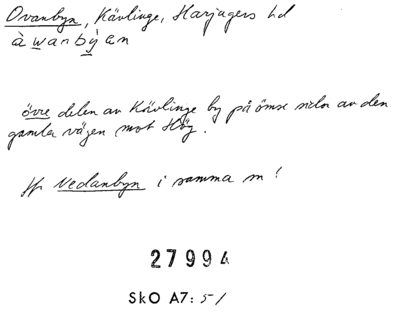 Ovanbyn, Kävlinge, Harjagers hd
à wanbýan
övre delen av Kävlinge by på ömse sidor av den
gamla vägen mot Hög.
Jfr Nedanbyn i samma sn!
27994
SkO A7: 51